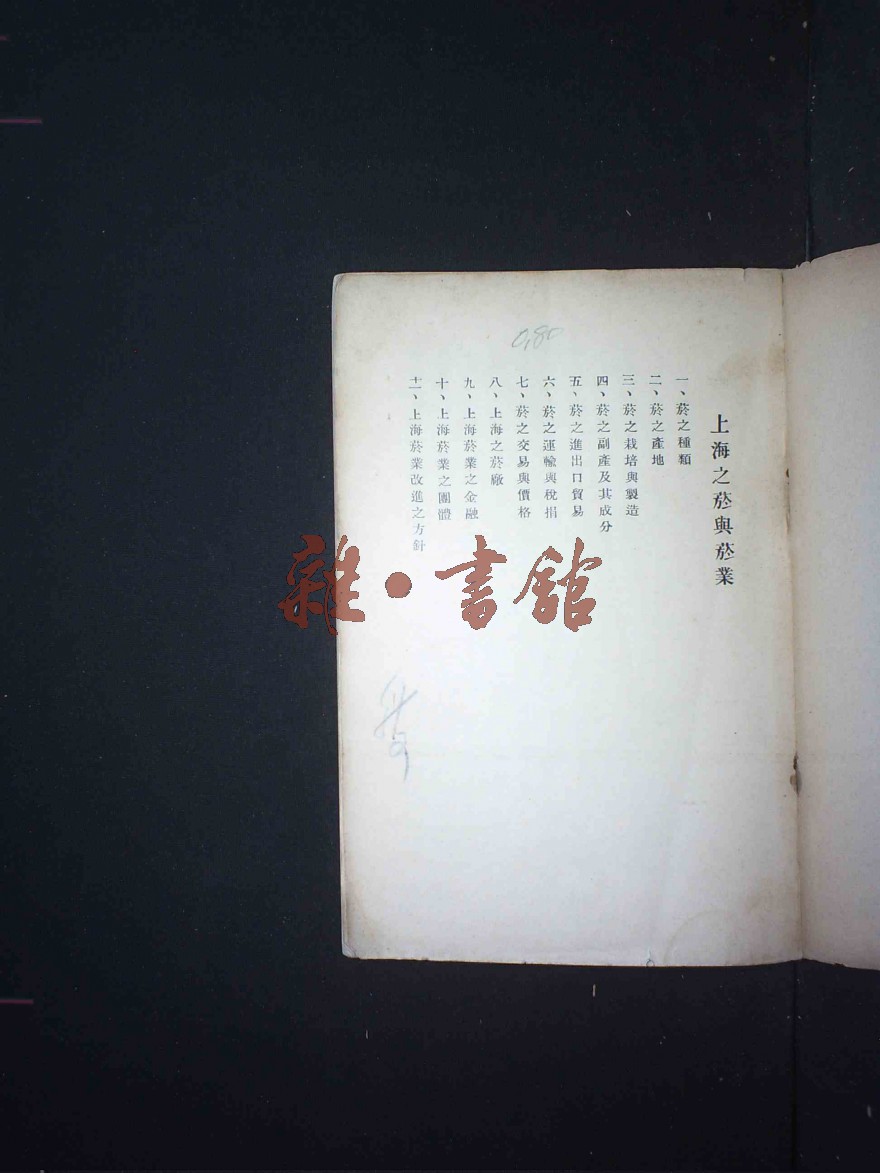 0,80
上海之菸與菸業
一、菸之種類
二、菸之產地
三、菸之栽培與製造
四、菸之副產及其成分
五、菸之進出口貿易
六、菸之運輸與稅捐
七、菸之交易與價格
八、上海之菸廠
九、上海菸業之金融
十、上海菸業之團體
十一、上海菸業改進之方針
雜•書館